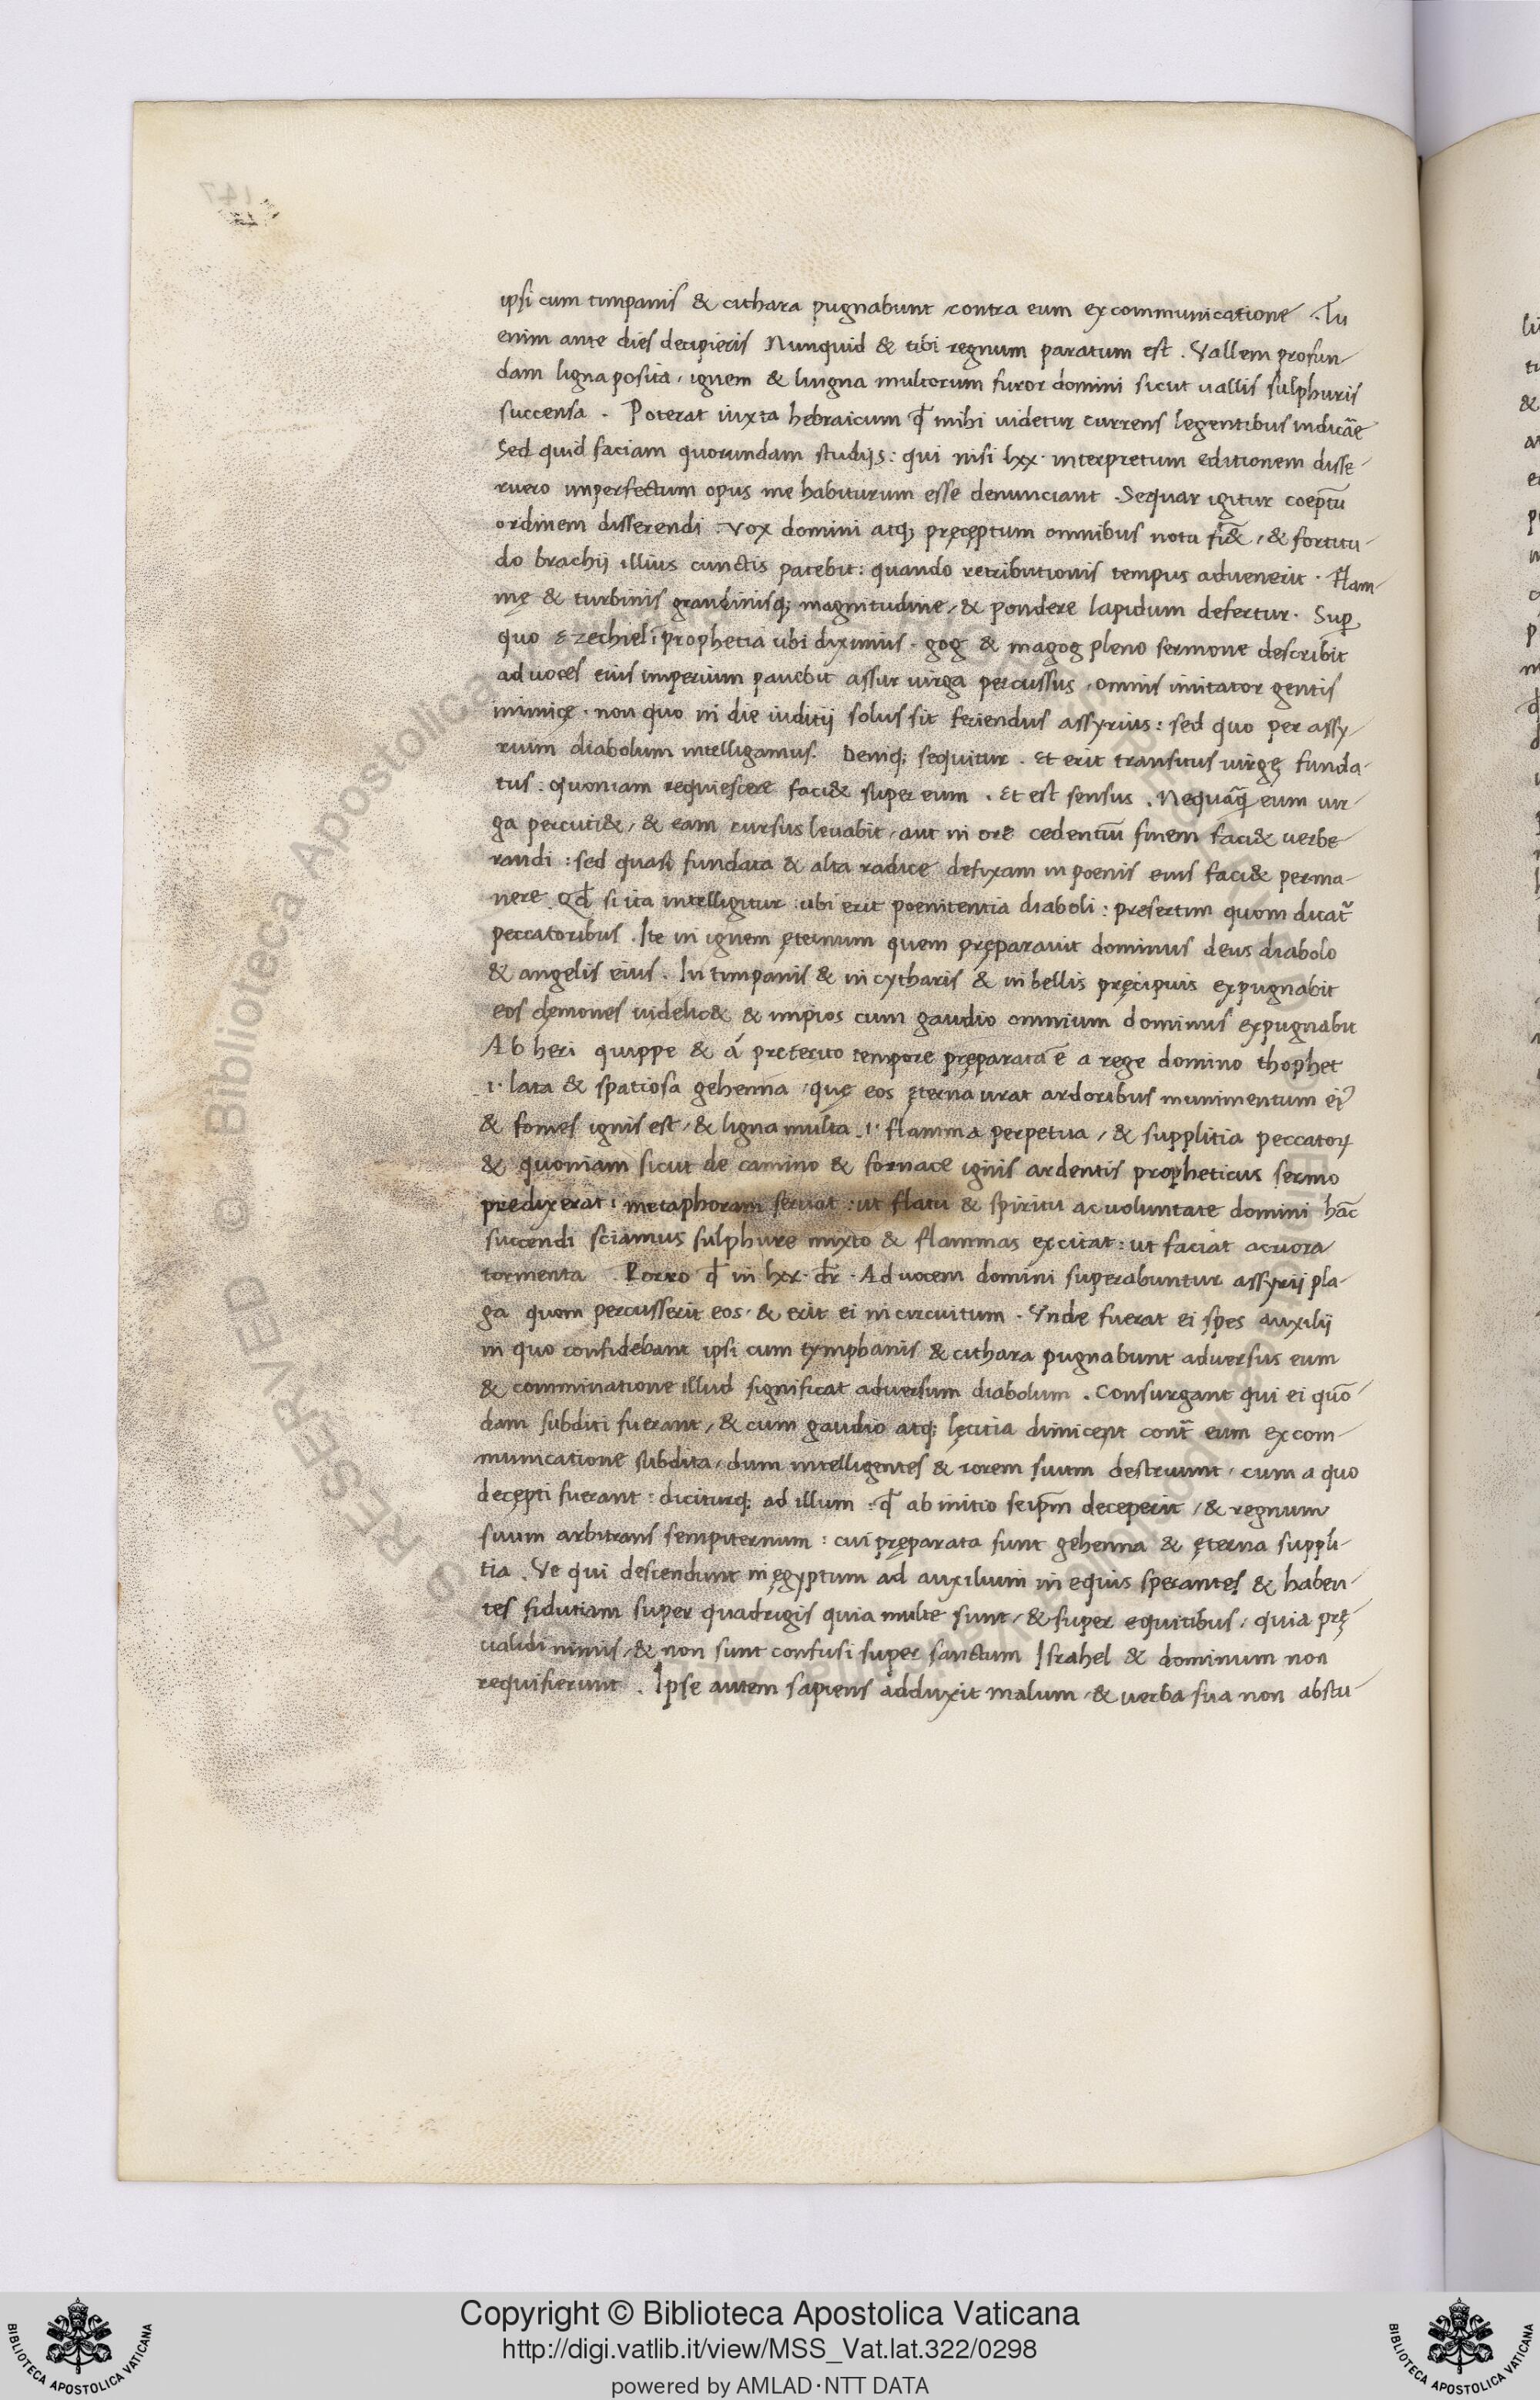 ipsi cum timpanis & cithara pugnabunt contra eum excommunicatione . Tu
enim ante dies decipieris Nunquid & tibi regnum paratum est . Vallem profun-
dam ligna posita , ignem & lingna multorum furor domini sicut uallis sulphuris
succensa . Poterat iuxta hebraicum qđ mihi uidetur currens legentibus indicāe
Sed quid faciam quorundam studijs : qui nisi lxx · interpretum editionem disse-
ruero imperfectum opus me habiturum esse denunciant . Sequar igitur coeptū
ordinem disserendi . Vox domini atq; pręceptum omnibus nota fi& , & fortitu-
do brachij illius cunctis patebit : quando retributionis tempus aduenerit . Flam-
mę & turbinis grandinisq; magnitudine , & pondere lapidum defertur . Sup
quo Ezechiel ī prophetia ubi diximus . gog & magog pleno sermone describit
ad uoces eius imperium pauebit assur uirga percussus , omnis imitator gentis
inimicę . non quo in die iuditij solus sit feriendus assyrius : sed quo per assy-
rium diabolum intelligamus . Deniq; sequitur . Et erit transitus uirgę funda-
tus : quoniam requiescere faci& super eum . Et est sensus . Nequāq̄ eum uir-
ga percuti& , & eam cursus leuabit , aut in ore cedentiū finem faci& uerbe-
randi : sed quasi fundata & alta radice defixam in poenis eius faci& perma-
nere . Qđ si ita intelligitur : ubi erit poenitentia diaboli : presertim quom dicat̄
peccatoribus . Ite in ignem ęternum quem pręparauit dominus deus diabolo
& angelis eius . In timpanis & in cytharis & in bellis pręcipuis expugnabit
eos dęmones uidelic& & impios cum gaudio omnium dominus expugnabit
Ab heri quippe & á preterito tempore pręparata ē a rege domino thophet
.i. lata & spatiosa gehenna , quę eos ęterna urat ardoribus munimentum ei'
& fomes ignis est , & ligna multa .i. flamma perpetua , & supplitia peccatoꝝ
& quoniam sicut de camino & fornace ignis ardentis propheticus sermo
predixerat : metaphoram seruat : ut flatu & spiritu ac uoluntate domini hāc
succendi sciamus sulphure mixto & flammas excitat : ut faciat acriora
tormenta . Porro qđ in lxx · dr̄ . Ad uocem domini superabuntur assyrij pla-
ga quom percusserit eos , & erit ei in circuitum . Vnde fuerat ei spes auxilij
in quo confidebant ipsi cum tymphanis & cithara pugnabunt aduersus eum
& comminatione illud significat aduersum diabolum . Consurgant qui ei quō-
dam subditi fuerant , & cum gaudio atq; lętitia dimicent cont̄ eum excom-
municatione subdita , dum intelligentes & rorem suum destruunt , cum a quo
decepti fuerant : diciturq; ad illum : qđ ab initio seip̄m deceperit , & regnum
suum arbitrans sempiternum : cui pręparata sunt gehenna & ęterna suppli-
tia . Ve qui descendunt in ęgyptum ad auxilium in equis sperantes & haben-
tes fidutiam super quadrigis quia multe sunt , & super equitibus , quia prę-
ualidi nimis , & non sunt confusi super sanctum Israhel & dominum non
requisierunt . Ipse autem sapiens adduxit malum , & uerba sua non abstu-
Copyright © Biblioteca Apostolica Vaticana
http://digi.vatlib.it/view/MSS_Vat.lat.322/0298
powered by AMLAD·NTT DATA